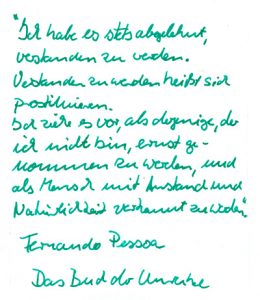 "Ich habe es stets abgelehnt,
verstanden zu werden.
Verstanden zu werden heißt sich
prostituieren.
Ich ziehe es vor, als derjenige, der
ich nicht bin, ernst ge-
nommen zu werden, und
als Mensch mit Anstand und
Natürlichkeit verkannt zu werden"
Fernando Pessoa
Das Buch der Unruhe